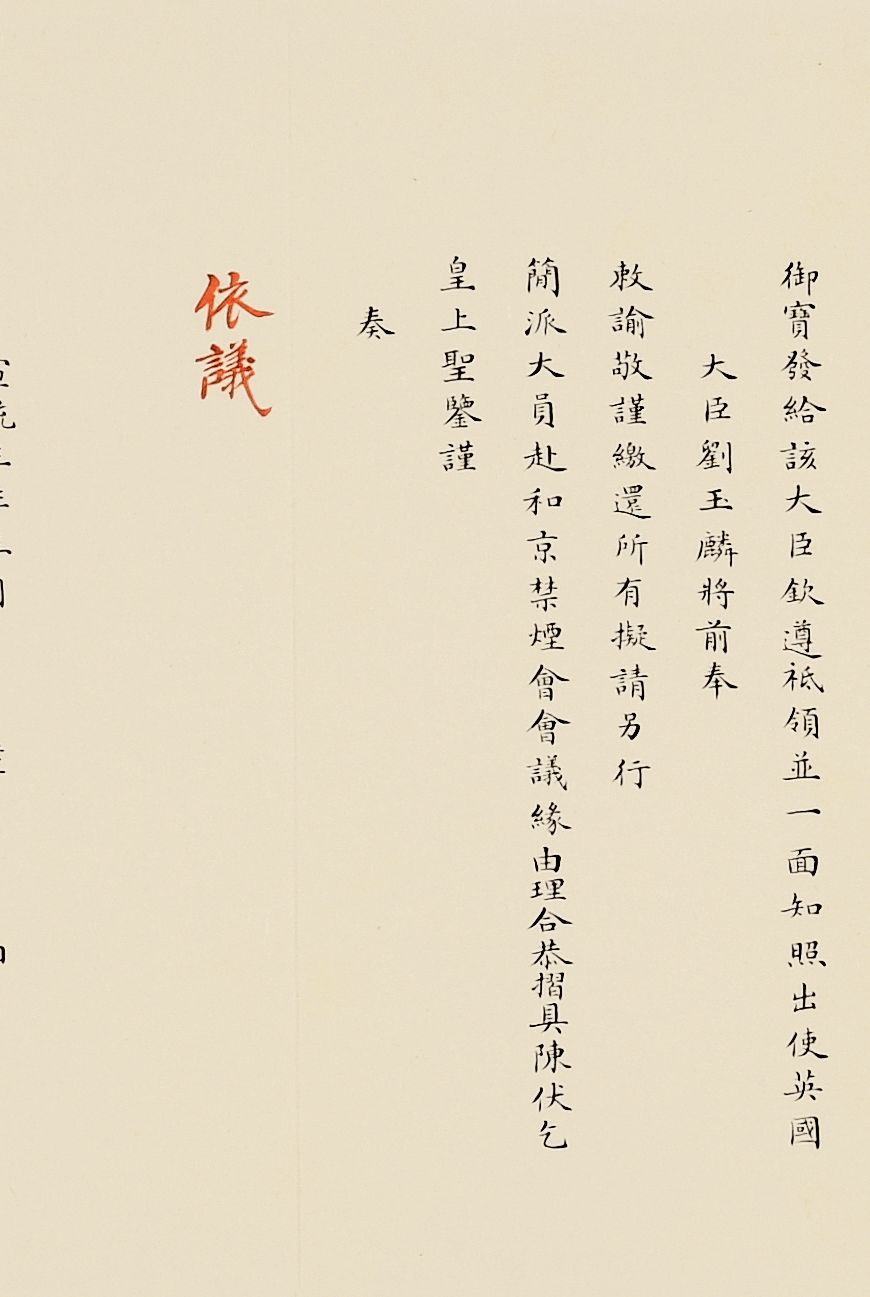 御寶發給該大臣欽遵祇領並一面知照出使英國
大臣劉玉麟將前奉
敕諭敬謹繳還所有擬請另行
簡派大員赴和京禁煙會會議緣由理合恭摺具陳伏乞
皇上聖鑒謹
奏
依議